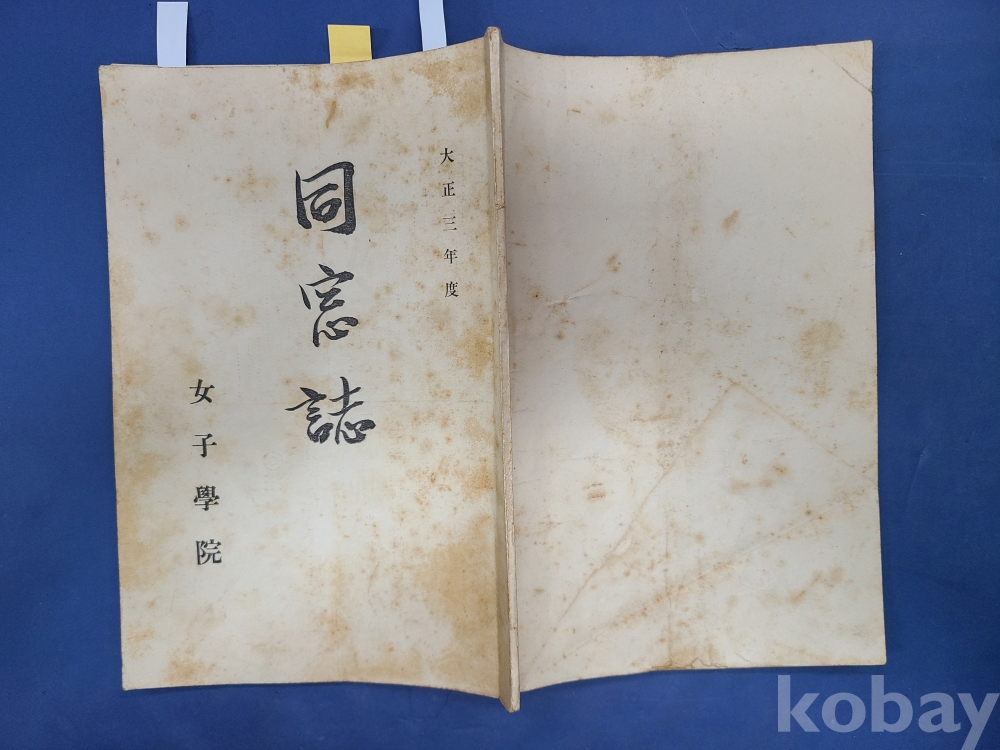 大正三年度
同窓誌
女子學院
kobay